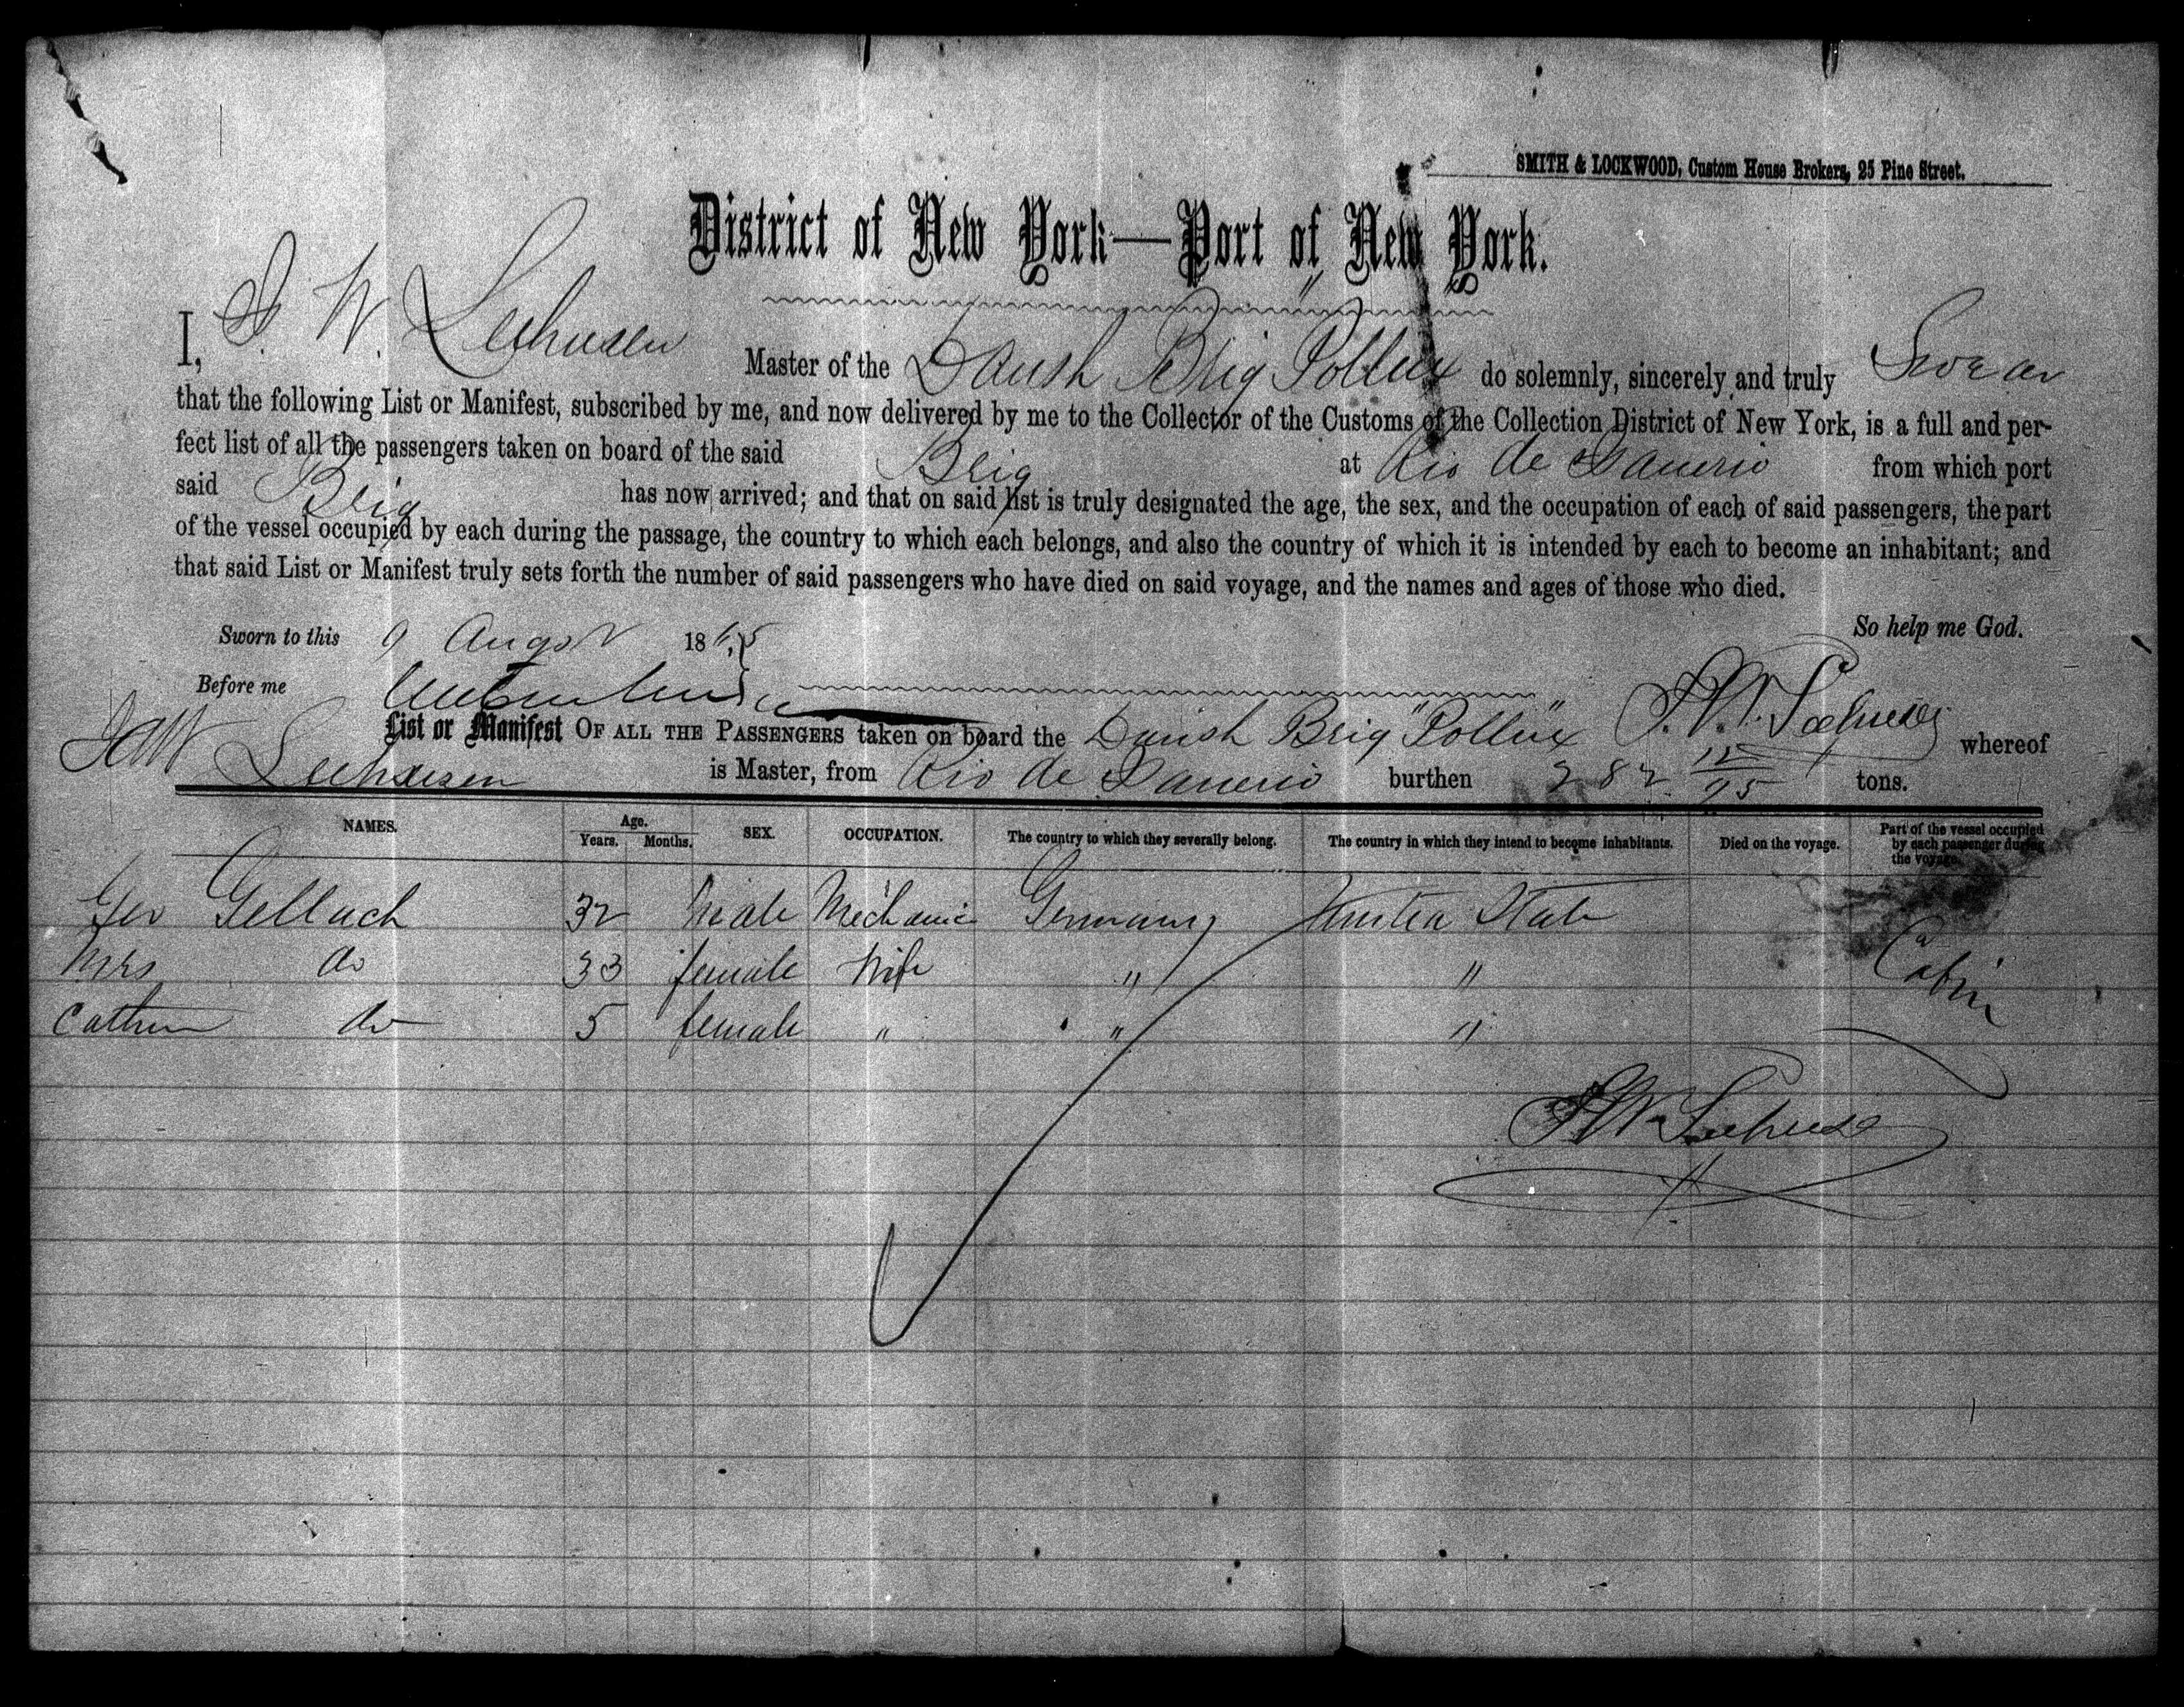 SMITH & LOCKWOOD, Custom House Brokers, 25 Pine Street.
District of New York—Port of New York.
I, W. Master of the Danish Brig "Pollux" do solemnly, sincerely and truly Swear
that the following List or Manifest, subscribed by me, and now delivered by me to the Collector of the Customs of the Collection District of New York, is a full and per-
fect list of all the passengers taken on board of the said Brig at Rio de Janerio from which port
said Brig has now arrived; and that on said list is truly designated the age, the sex, and the occupation of each of said passengers, the part
of the vessel occupied by each during the passage, the country to which each belongs, and also the country of which it is intended by each to become an inhabitant; and
that said List or Manifest truly sets forth the number of said passengers who have died on said voyage, and the names and ages of those who died.
So help me God.
Sworn to this 9 August 1865
Before me
List or Manifest OF ALL THE PASSENGERS taken on board the Danish Brig "Pollux" whereof
is Master, from Rio de Janerio burthen 282 12/95 tons.
NAMES. Age. Years. Months. SEX. OCCUPATION. The country to which they severally belong. The country in which they intend to become inhabitants. Died on the voyage. Part of the vessel occupied by each passenger during the voyage.
Geo Gellach 32 Male Mechanic Germany United State
Mrs do 33 female Wife " " Cabin
do 5 female " " "